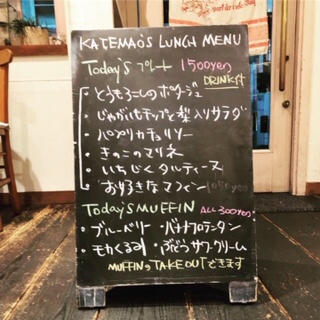 KATEMAO'S LUNCH MENU
Today's プレート 1500yen
DRINK付
・とうもろこしのポタージュ
・じゃがいもチップと梨入りサラダ
・パプリカチョリソー
・きのこのマリネ
・いちじくタルティーヌ
・お好きなマフィン
Today's MUFFIN ALL 300yen
・ブルーベリー ・バナナフロランタン
・モカくるみ ・ぶどうサワークリーム
MUFFINのみTAKE OUTできます